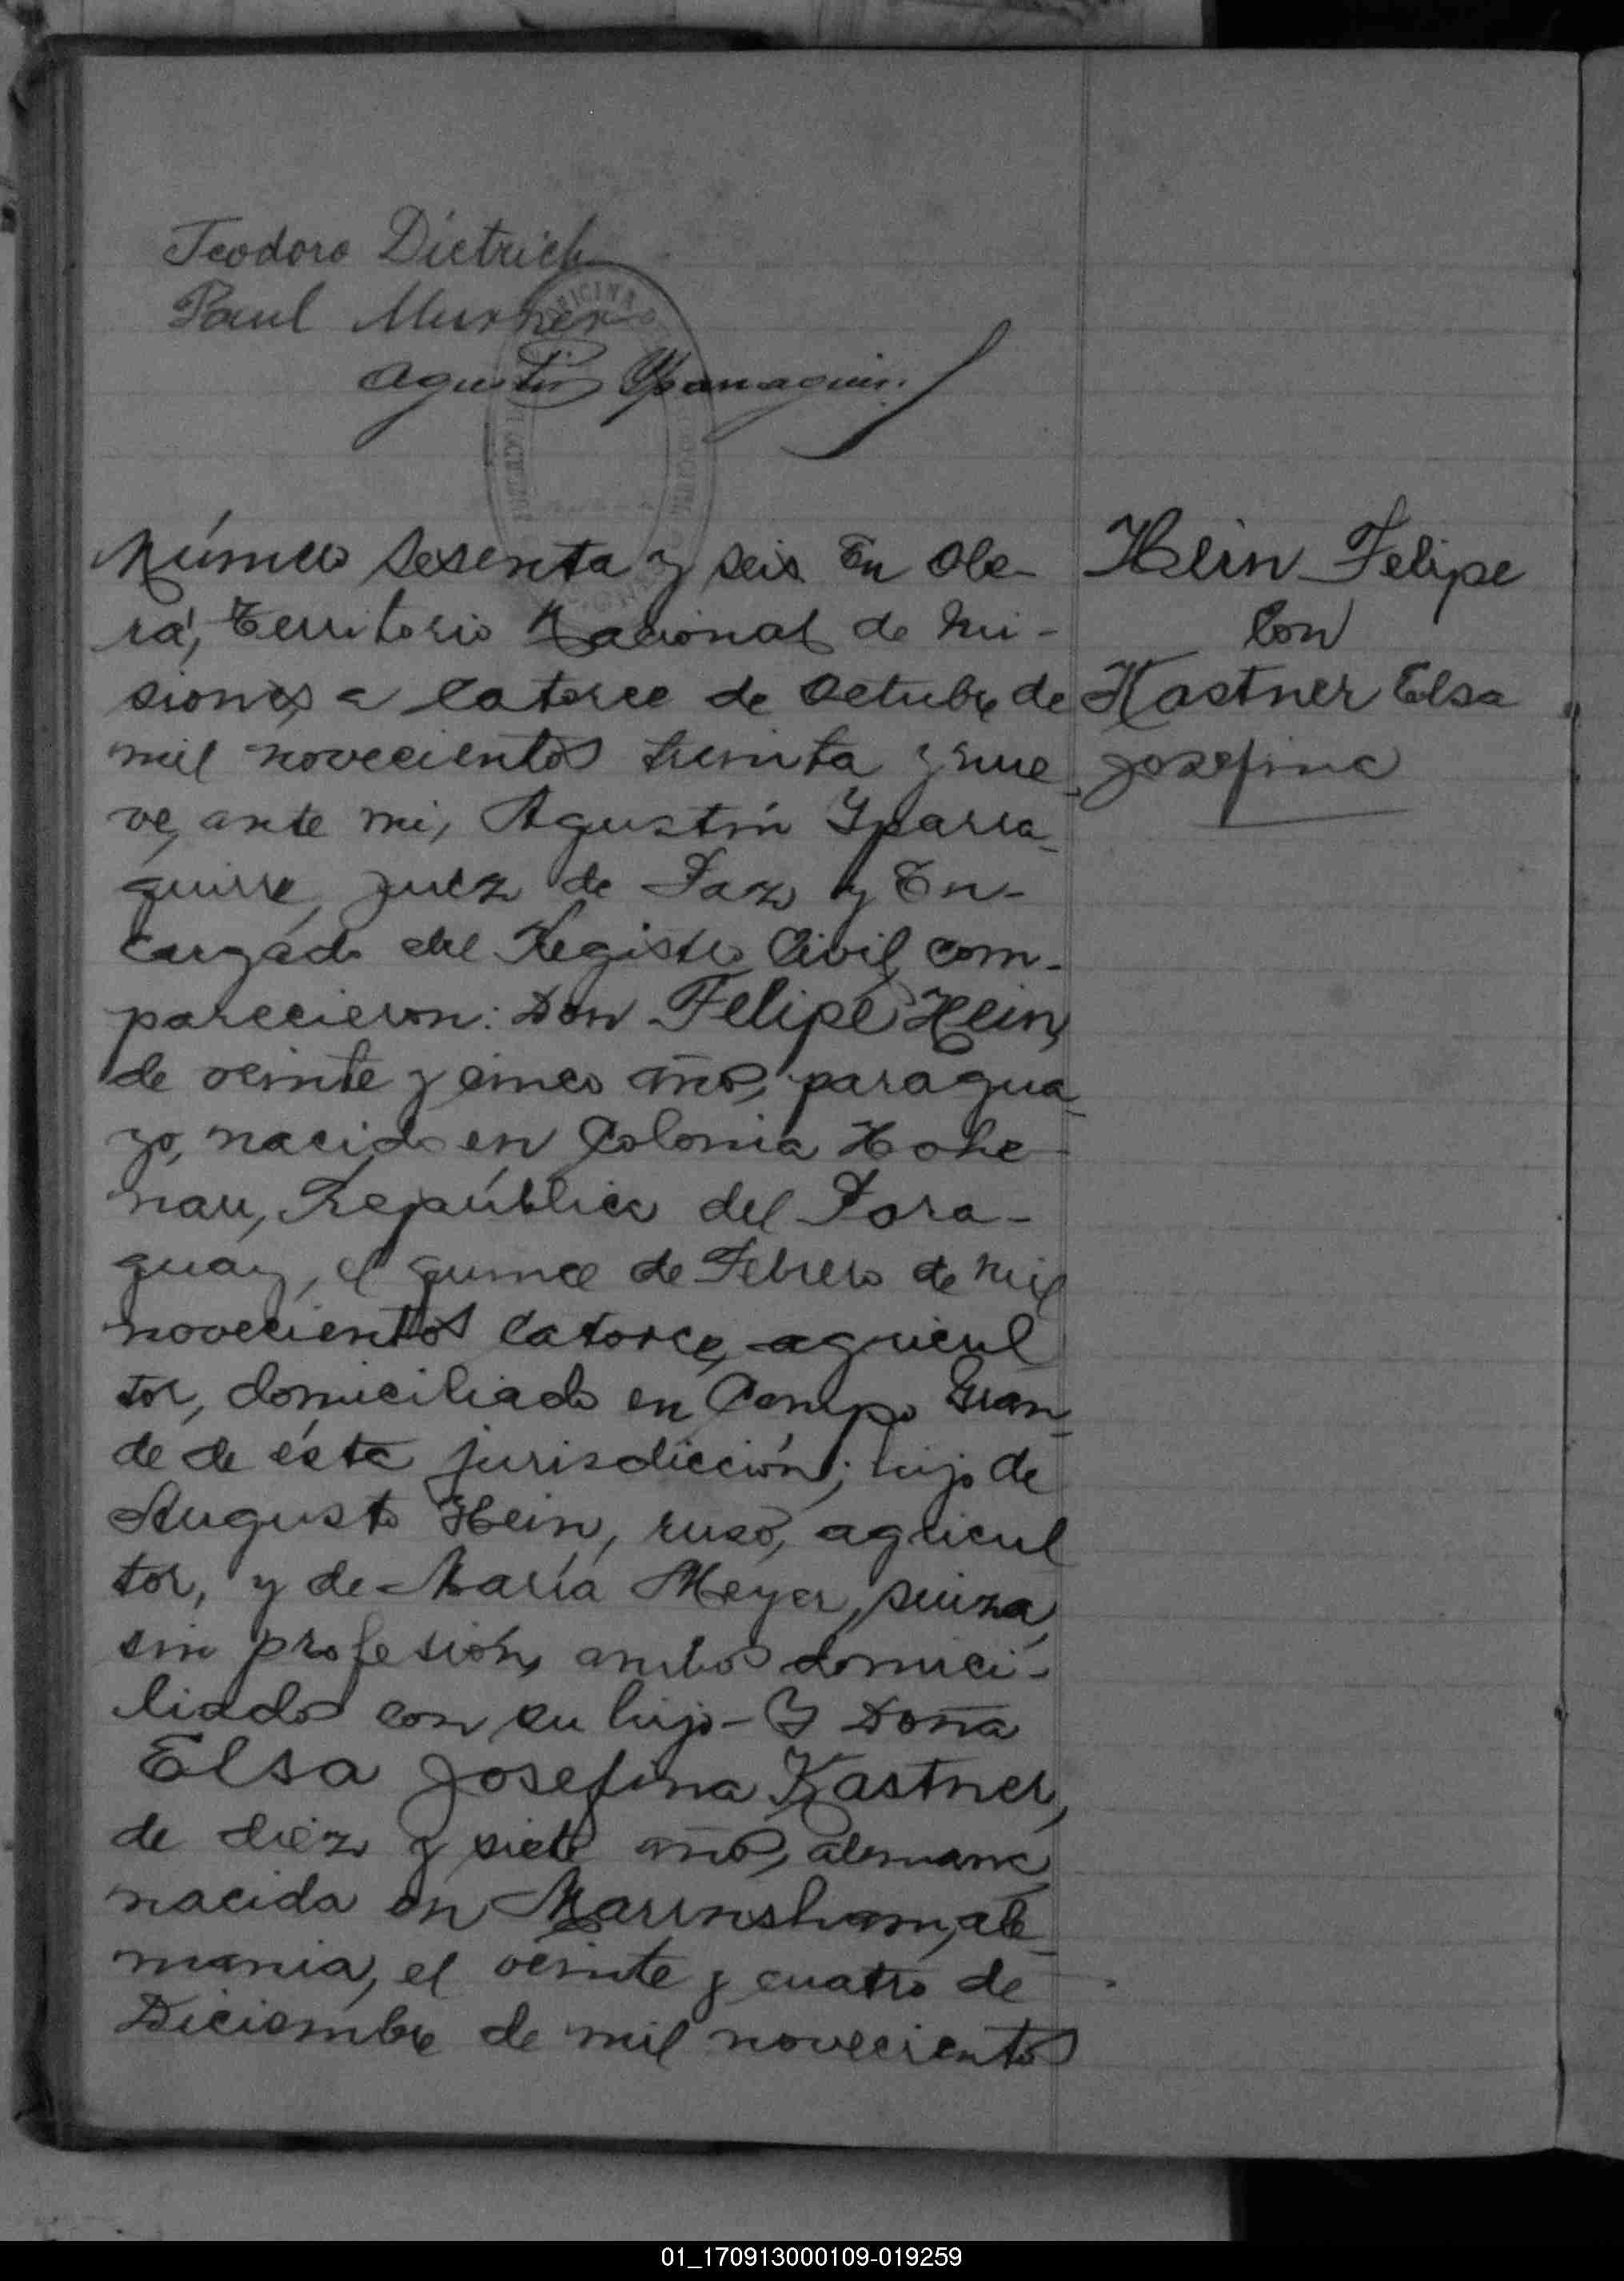 Teodoro Dietrich
Paul Murner
Agustín Yparraguirre
OFICINA
Número sesenta y seis En Obe-
rá, Territorio Nacional de Mi-
siones a catorce de Octubre de
mil novecientos treinta y nue-
ve, ante mi, Agustín Yparra-
guirre, juez de Paz y En-
cargado del Registro Civil, com-
parecieron: Don Felipe Hein,
de veinte y cinco años, paragua-
yo, nacido en Colonia Hohe-
nau, República del Para-
guay, el quince de Febrero de mil
novecientos catorce, agricul
tor, domiciliado en Campo Gran-
de de ésta jurisdicción; hijo de
Augusto Hein, ruso, agricul
tor, y de María Meyer, suiza,
sin profesión, ambos domici-
liados con su hijo- Y Doña
Elsa Josefina Kastner,
de diez y siete años, alemana,
nacida en Marinsham, ale-
mania, el veinte y cuatro de
Diciembre de mil novecientos
Hein Felipe
con
Kastner Elsa
Josefina
01_170913000109-019259